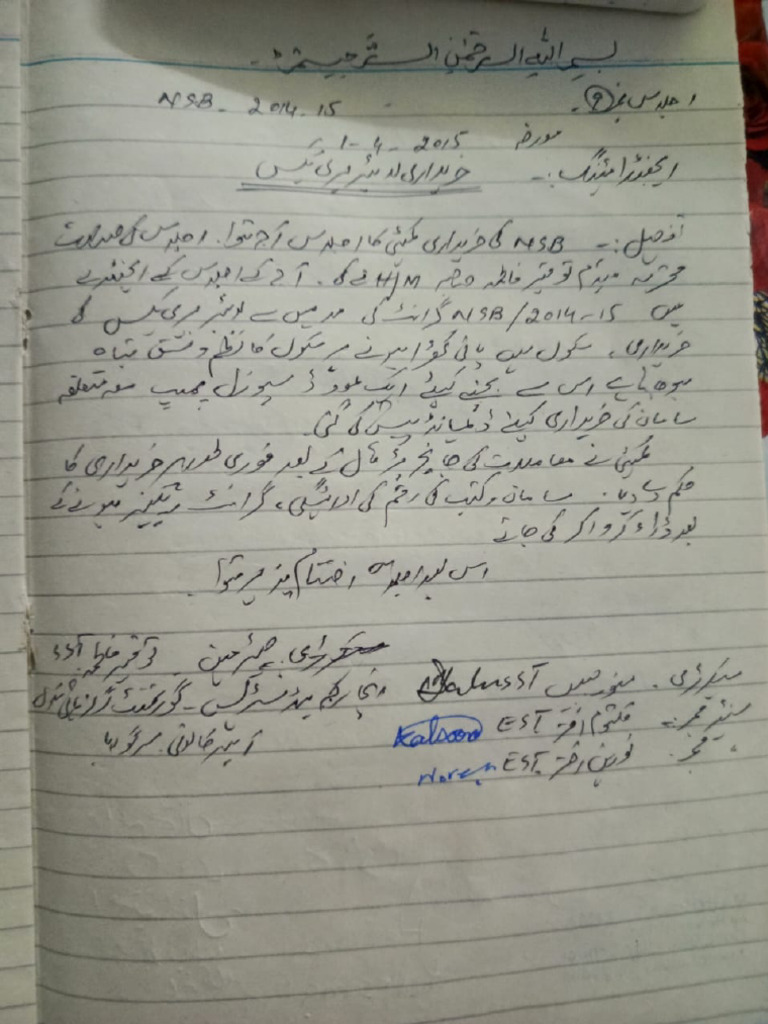 بسم اللہ الرحمٰن الرحیم
اجلاس نمبر 9 - NSB - 2014-15
مورخہ 1-4-2015
ایجنڈا میٹنگ :- خریداری لوئیر مری بکس
تفصیل :- NSB کی خریداری کمیٹی کا اجلاس آج ہوا. اجلاس کی صدارت
محترمہ میڈم توقیر فاطمہ H/M نے کی. آج کے اجلاس کے ایجنڈے
میں NSB/2014-15 گرانٹ کی مد میں سے کی
خریداری، سکول میں پانی کھڑا ہونے پر سکول کا نظم و نسق تباہ
ہو جاتا ہے اس سے بچنے کیلئے ایک عدد ڈسپوزل پمپ معہ متعلقہ
سامان کی خریداری کیلئے ڈیمانڈ پیش کی گئی.
کمیٹی نے معاملات کی جانچ پڑتال کے بعد فوری طور پر خریداری کا
حکم دے دیا. سامان و کتب کی رقم کی ادائیگی، گرانٹ ہونے کے
بعد ڈرا کروا کر کی جائے
اس بعد اجلاس اختتام پذیر ہوا.
چیئر مین توقیر فاطمہ SST
انچارج ہیڈ مسٹریس - گورنمنٹ گرلز ہائی سکول
سرگودھا
سیکرٹری. SST
سینئر ممبر :- کلثوم اختر EST Kalsoom
ممبر. نورین اختر EST Noreen